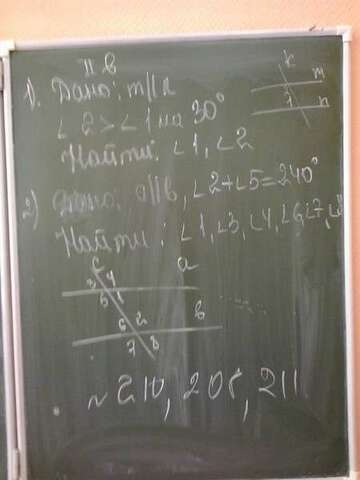 II в
1). Дано: m||n
∠2>∠1 на 30°
Найти: ∠1, ∠2
k
m
n
2) Дано: a||b, ∠2+∠5=240°
Найти: ∠1, ∠3, ∠4, ∠6, ∠7, ∠8
c
a
3 4
5 1
b
6 2
7 8
№ 210, 208, 211